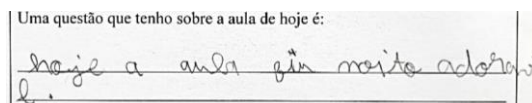 Uma questão que tenho sobre a aula de hoje é:
hoje a aula moito adorav
l.